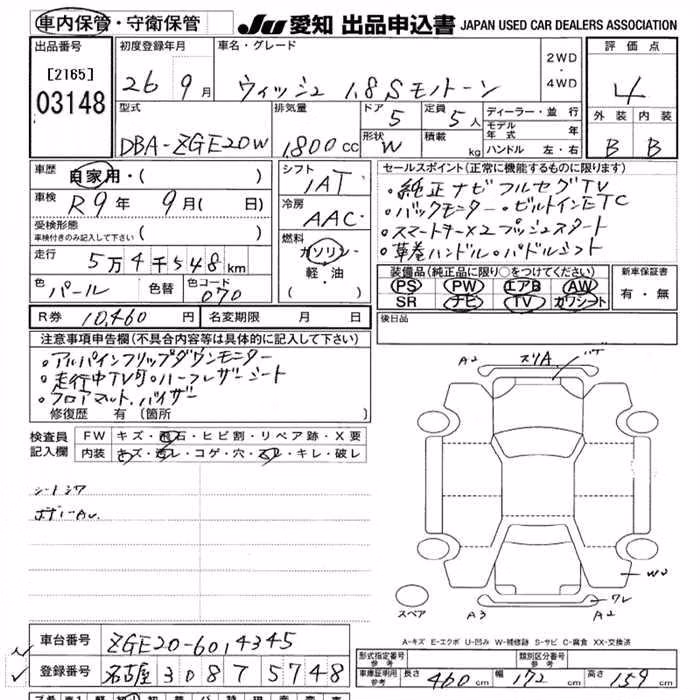 車内保管・守衛保管 JU 愛知 出品申込書 JAPAN USED CAR DEALERS ASSOCIATION
出品番号 初度登録年月 車名・グレード 2WD・4WD 評価点
[2165]
03148 26 9月 ウィッシュ 1.8S モノトーン 4
型式 排気量 ドア 定員 ディーラー・並行 外装 内装
DBA-ZGE20W 1,800cc 5 5人 モデル年式 年
形状 W 積載 kg ハンドル 左・右 B B
車歴 自家用・( ) シフト 1AT セールスポイント(正常に機能するものに限ります)
。純正ナビフルセグTV
車検 R9年 9月( 日) 冷房 AAC 。バックモニター。ビルトインETC
受検形態 。スマートキー×2プッシュスタート
車検付きのみ記入して下さい ( ) 。革巻ハンドル。パドルシフト
走行 5万4千548km 燃料 ガソリン・軽・油
装備品(純正品に限り○をつけてください) 新車保証書
色 パール 色替 色コード 070 PS PW エアB AW 有・無
SR ナビ TV カワシート
R券 10,460円 名変期限 月 日 後日品
注意事項申告欄(不具合内容等は具体的に記入して下さい)
。アルパインフリップダウンモニター
。走行中TV可。ハーフレザーシート
。フロアマット、バイザー
修復歴 有(箇所 )
A2 スリA
検査員記入欄 FW キズ・飛石・ヒビ割・リペア跡・X要
内装 キズ・汚レ・コゲ・穴・スレ・キレ・破レ
シートシワ
ボデーAU
WU
スペア A3 ワレ A2
A-キズ E-エクボ U-凹み W-補修跡 S-サビ C-腐食 XX-交換済
車台番号 ZGE20-6014345
形式指定番号 参考 類別区分番号 参考
登録番号 名古屋 308 ち 5748
車庫証明用 参考 長さ 460cm 幅 172cm 高さ 159cm